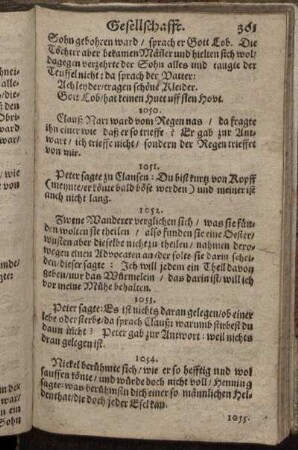 Gesellschafft. 361
Sohn gebohren ward / sprach er Gott Lob. Die
Töchter aber bekamen Mäñer und hielten sich wol/
dagegen verzehrte der Sohn alles und taugte der
Teuffel nicht: da sprach der Vatter:
Ach leyder/tragen schöne Kleider.
Gott Lob/hat keinen Huet uff sten Hovt.
1050.
Clauß Narr ward vom Regen nas / da fragte
ihn einer wie daß er so trieffe ? Er gab zur Ant-
wort / ich trieffe nicht/ sondern der Regen trieffet
von mir.
1051.
Peter sagte zu Clausen: Du bist kurtz von Kopff
(meynte/er köñte bald böse werden) und meiner ist
auch nicht lang.
1052.
Zwene Wanderer verglichen sich / was sie fün-
den wolten sie theilen / also funden sie eine Oester/
wusten aber dieselbe nicht zu theilen/ nahmen dero-
wegen einen Advocaten an/der solte sie darin schei-
den/dieser sagte: Ich will jedem ein Theil davon
geben/nur das Würmelein / das darin ist/ will ich
vor meine Mühe behalten.
1053.
Peter sagte: Es ist nichts daran gelegen/ob einer
lebe oder sterbe/da sprach Clauß: warumb stirbest du
dann nicht? Peter gab zur Antwort: weil nichts
dran gelegen ist.
1054.
Nickel berühmte sich/ wie er so hefftig und wol
sauffen könte/ und würde doch nicht voll/ Henning
sagte: was berühmstu dich einer so männlichen Hel-
denthat/die doch jeder Esel kan.
1055.